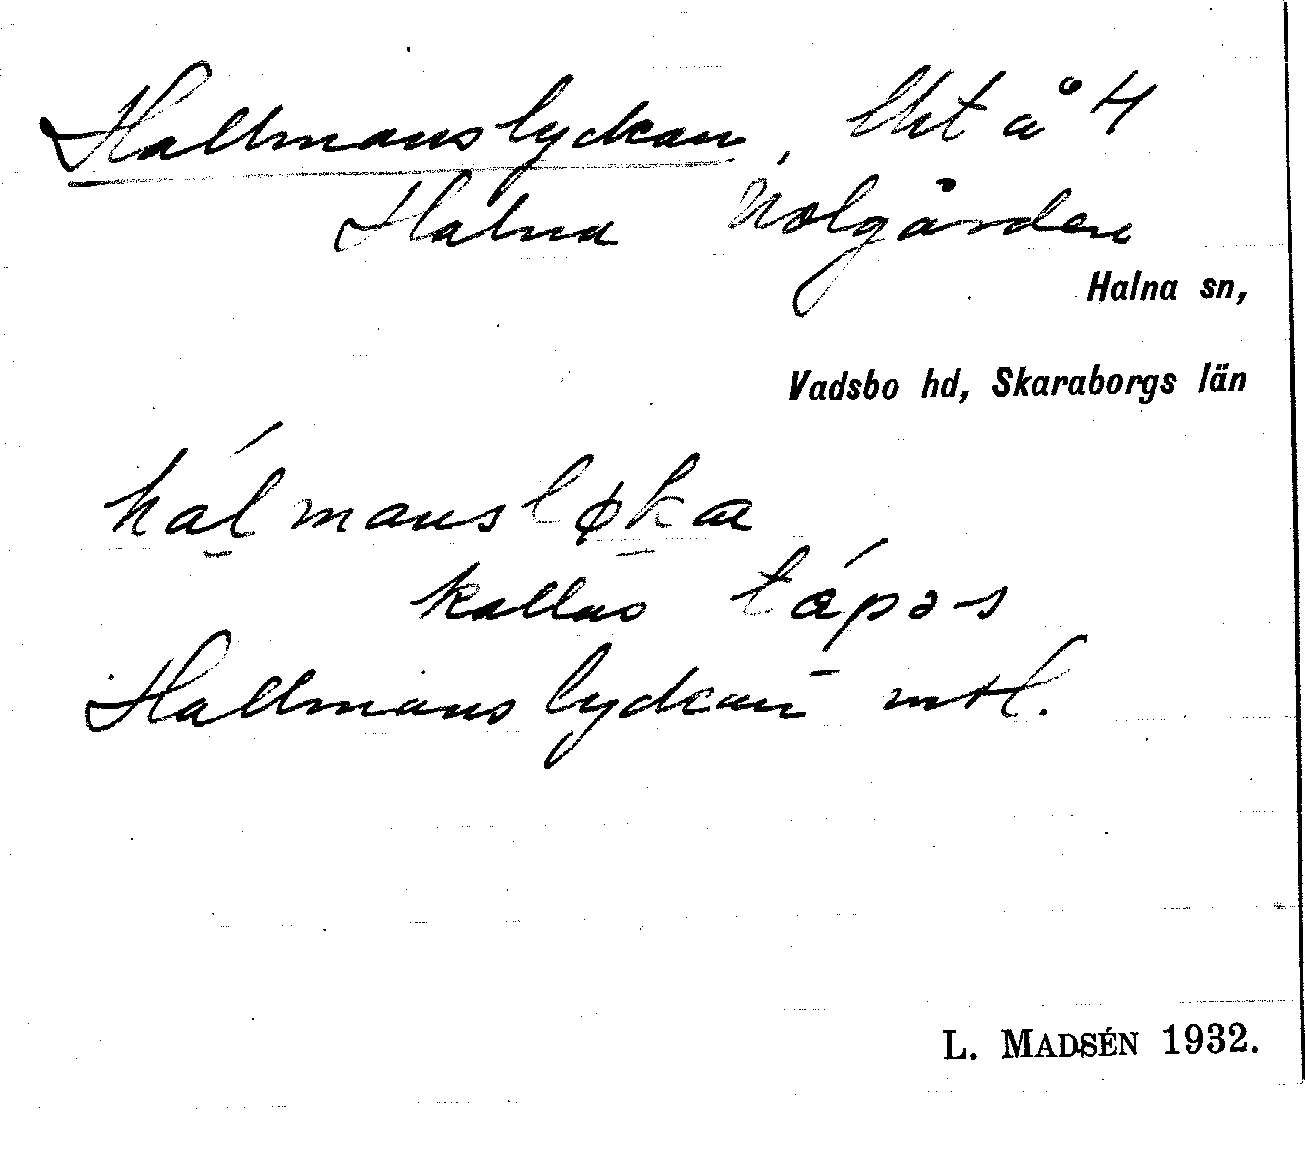 Hallmanslyckan, lht å 4
Halna Nolgården
Halna sn,
Vadsbo hd, Skaraborgs län
hálmansløka
kallas tápəs
Hallmanslyckan mtl.
L. MADSÉN 1932.